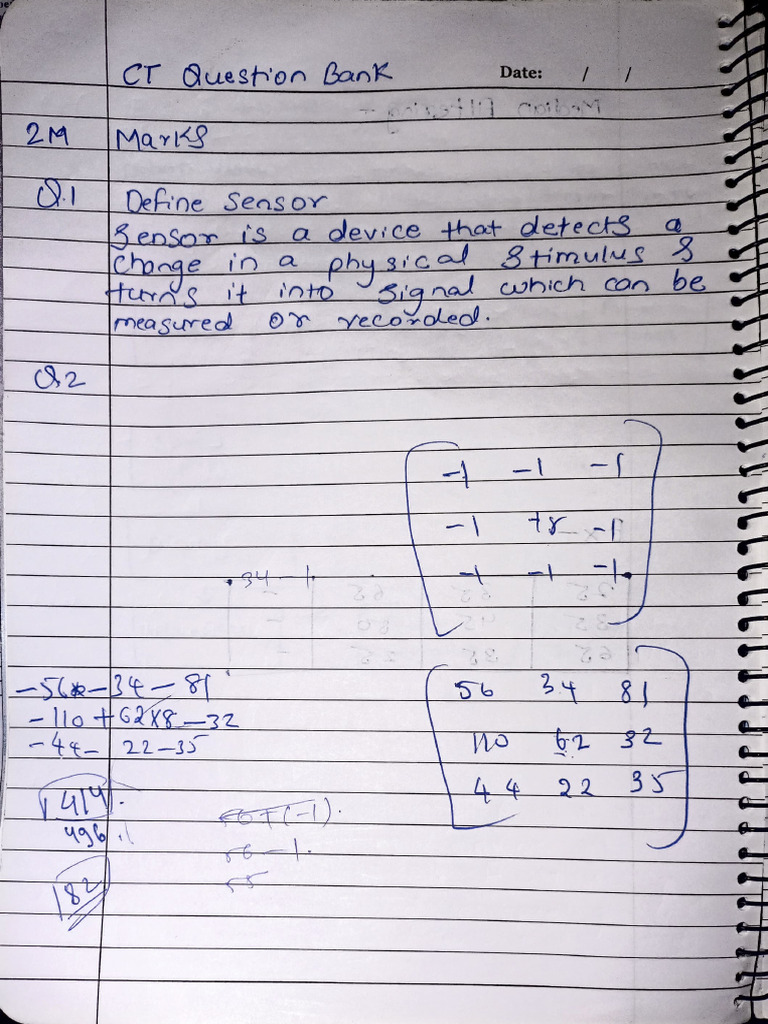 CT Question Bank Date: / /
2M Marks
Q.1 Define Sensor
Sensor is a device that detects a
change in a physical stimulus &
turns it into signal which can be
measured or recorded.
Q2
-1 -1 -1
-1 +8 -1
-1 -1 -1
34-1
56 34 81
110 62 32
44 22 35
-56 -34-81
-110+62x8-32
-44-22-35
414
496
82
56-1
55